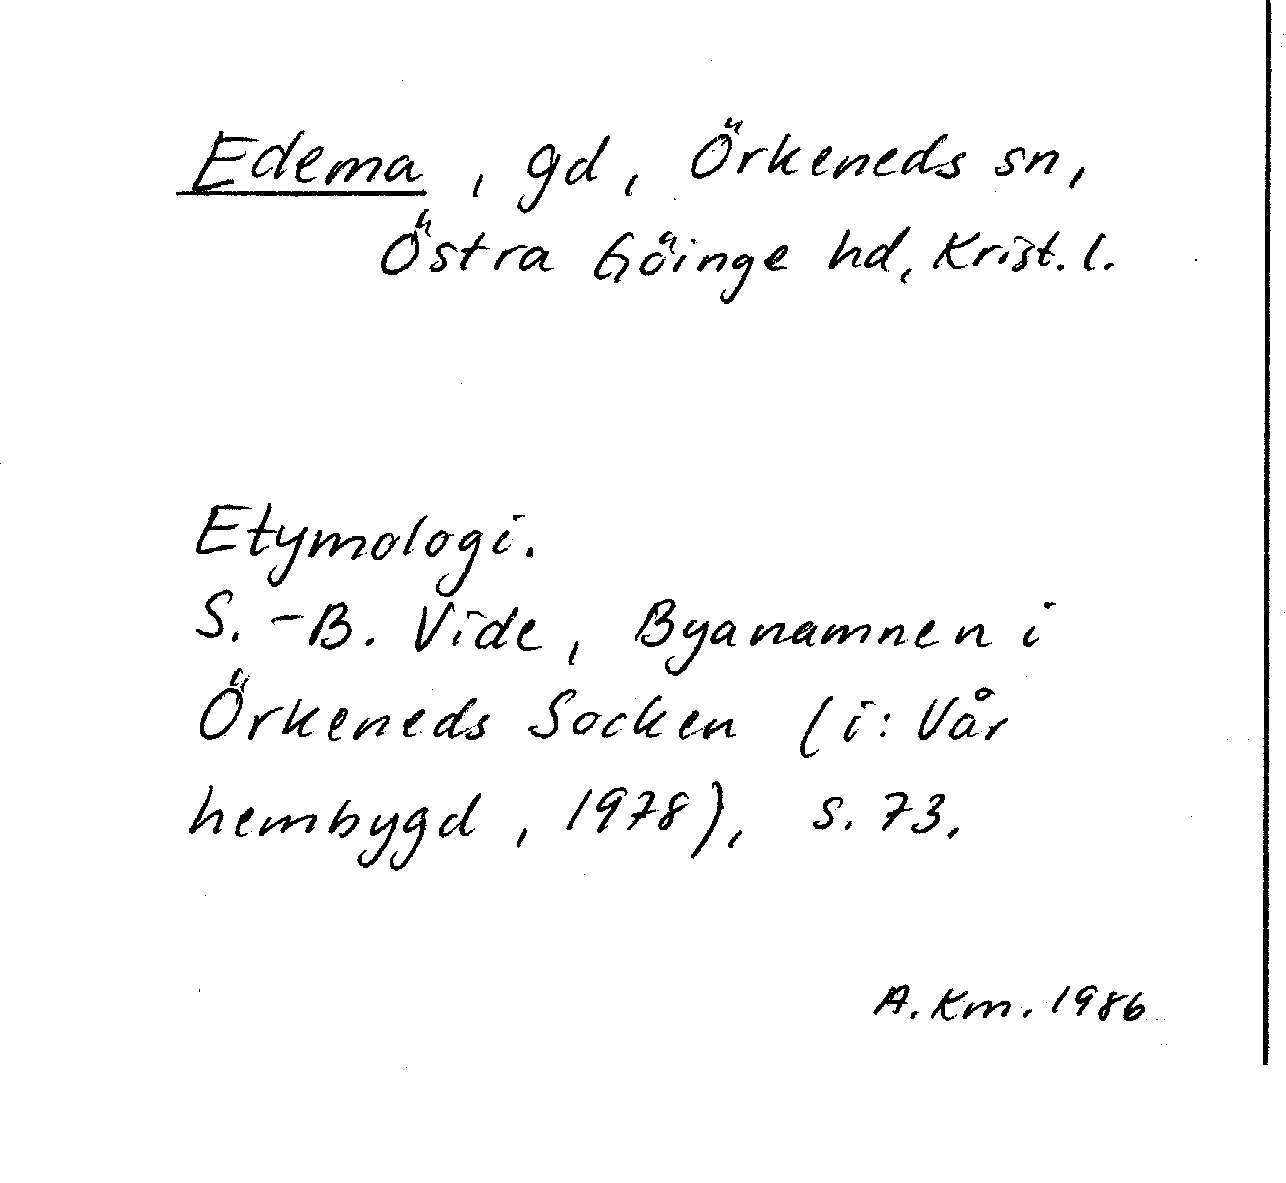 Edema, gd, Örkeneds sn,
Östra Göinge hd, Krist. l.
Etymologi.
S.-B. Vide, Byanamnen i
Örkeneds Socken (i: Vår
hembygd, 1978), s. 73.
A. Km. 1986